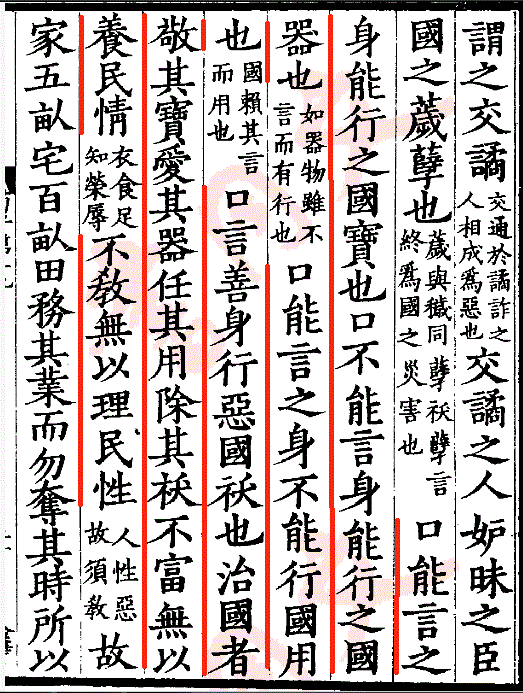 謂之交譎交通於譎詐之人相成為惡也交譎之人妒昧之臣
國之薉孽也薉與穢同孽祅孽言終為國之災害也口能言之
身能行之國寶也口不能言身能行之國
器也如器物雖不言而有行也口能言之身不能行國用
也國賴其言而用也口言善身行惡國祅也治國者
敬其寶愛其器任其用除其祅不富無以
養民情衣食足知榮辱不教無以理民性人性惡故須教故
家五畝宅百畝田務其業而勿奪其時所以